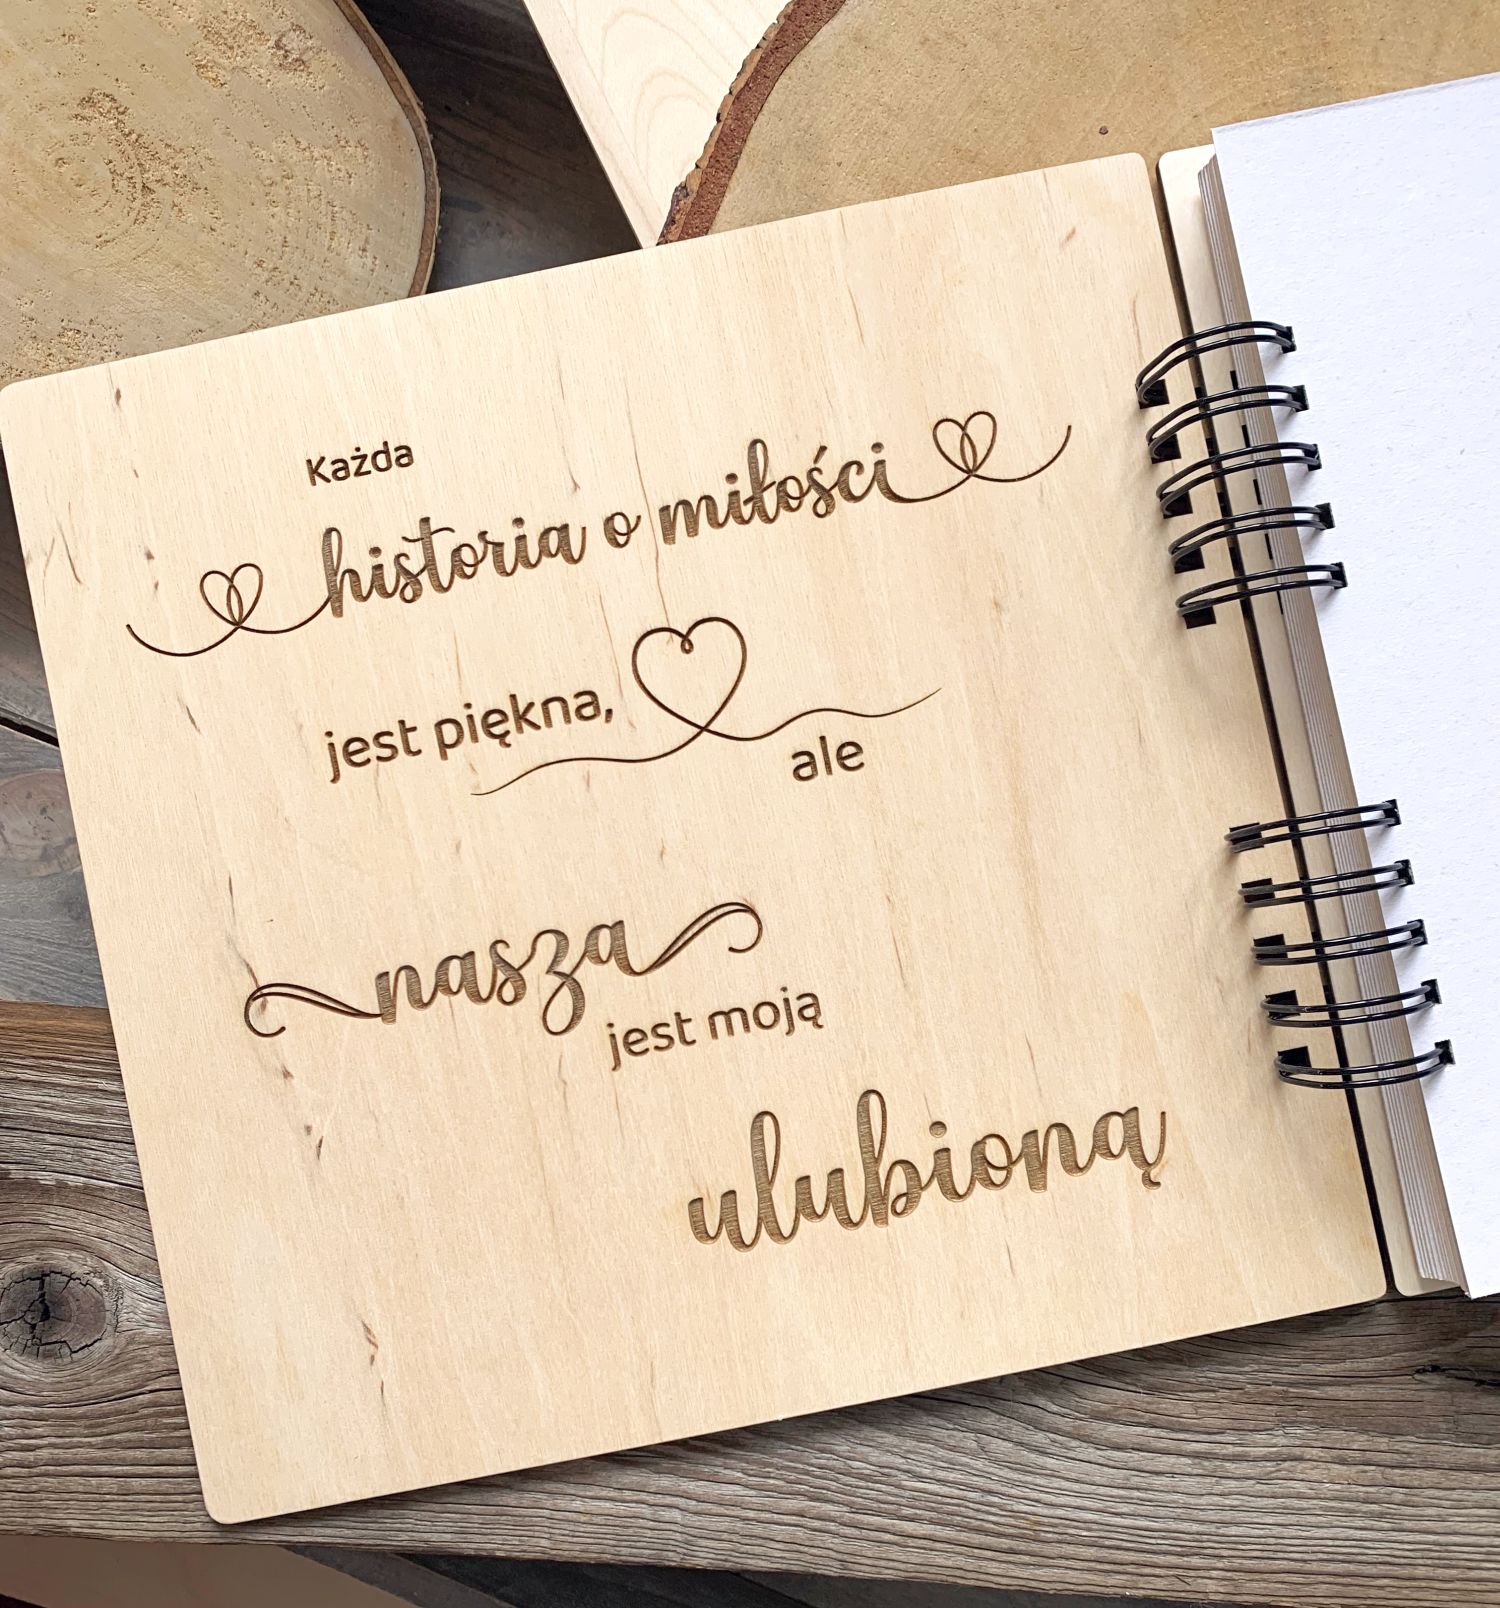 Każda
historia o miłości
jest piękna,
ale
nasza
jest moją
ulubioną